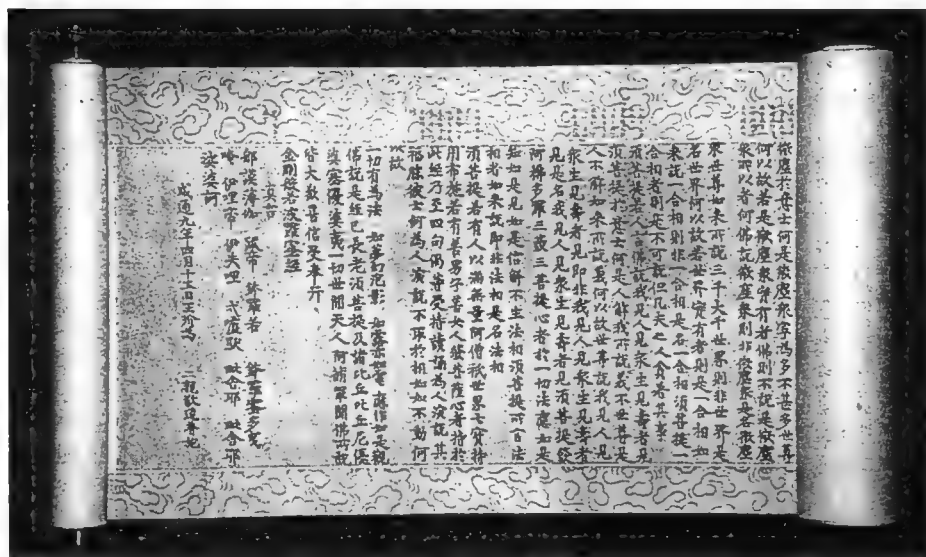 微塵於意云何是微塵眾寧為多不甚多世尊
何以故若是微塵眾實有者佛則不說是微塵
眾所以者何佛說微塵眾則非微塵眾是名微塵
眾世尊如來所說三千大千世界則非世界是
名世界何以故若世界實有者則是一合相如
來說一合相則非一合相是名一合相須菩提一
合相者則是不可說但凡夫之人貪著其事
須菩提若人言佛說我見人見眾生見壽者見
須菩提於意云何是人解我所說義不世尊是
人不解如來所說義何以故世尊說我見人見
眾生見壽者見即非我見人見眾生見壽者
見是名我見人見眾生見壽者見須菩提發
阿耨多羅三藐三菩提心者於一切法應如是
知如是見如是信解不生法相須菩提所言法
相者如來說即非法相是名法相
須菩提若有人以滿無量阿僧祇世界七寶持
用布施若有善男子善女人發菩薩心者持於
此經乃至四句偈等受持讀誦為人演說其
福勝彼云何為人演說不取於相如如不動何
以故
一切有為法 如夢幻泡影 如露亦如電 應作如是觀
佛說是經已長老須菩提及諸比丘比丘尼優
婆塞優婆夷一切世間天人阿修羅聞佛所說
皆大歡喜信受奉行
金剛般若波羅蜜經
真言
那謨薄伽 跋帝 鉢羅若 鉢羅蜜多曳
唵 伊哩帝 伊失哩 戍盧馱 毗舍耶 毗舍耶
莎婆訶
咸通九年四月十五日王玠為 二親敬造普施